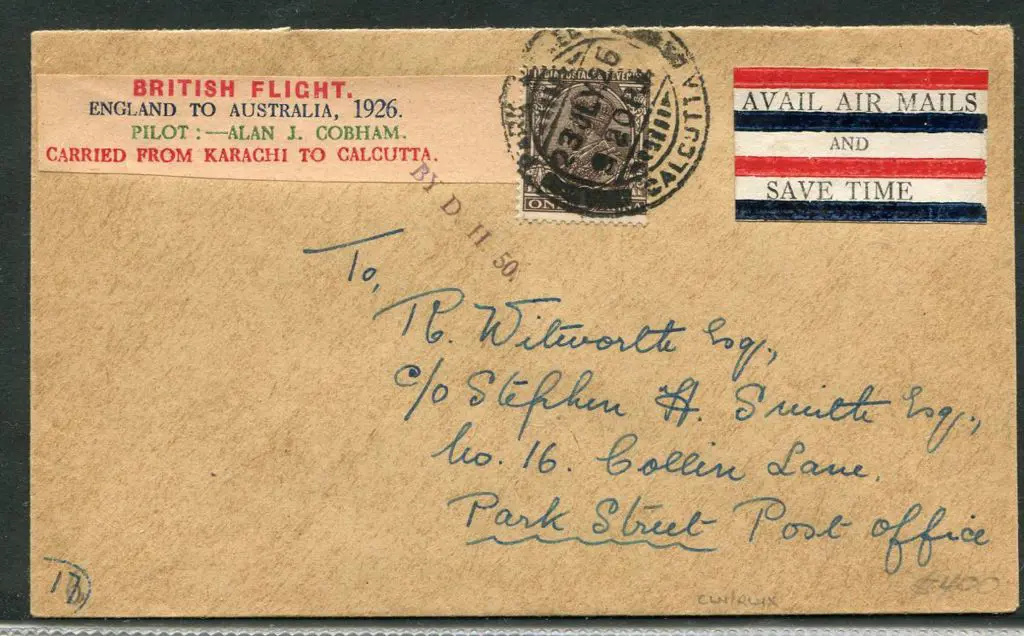 BRITISH FLIGHT.
ENGLAND TO AUSTRALIA, 1926.
PILOT :—ALAN J. COBHAM.
CARRIED FROM KARACHI TO CALCUTTA.
BY D. H 50.
CALCUTTA
23 JUL 26
ONE
AVAIL AIR MAILS
AND
SAVE TIME
To,
R. Witworth Esq.,
c/o Stephen H. Smith Esq.,
No. 16. Collin Lane.
Park Street Post office